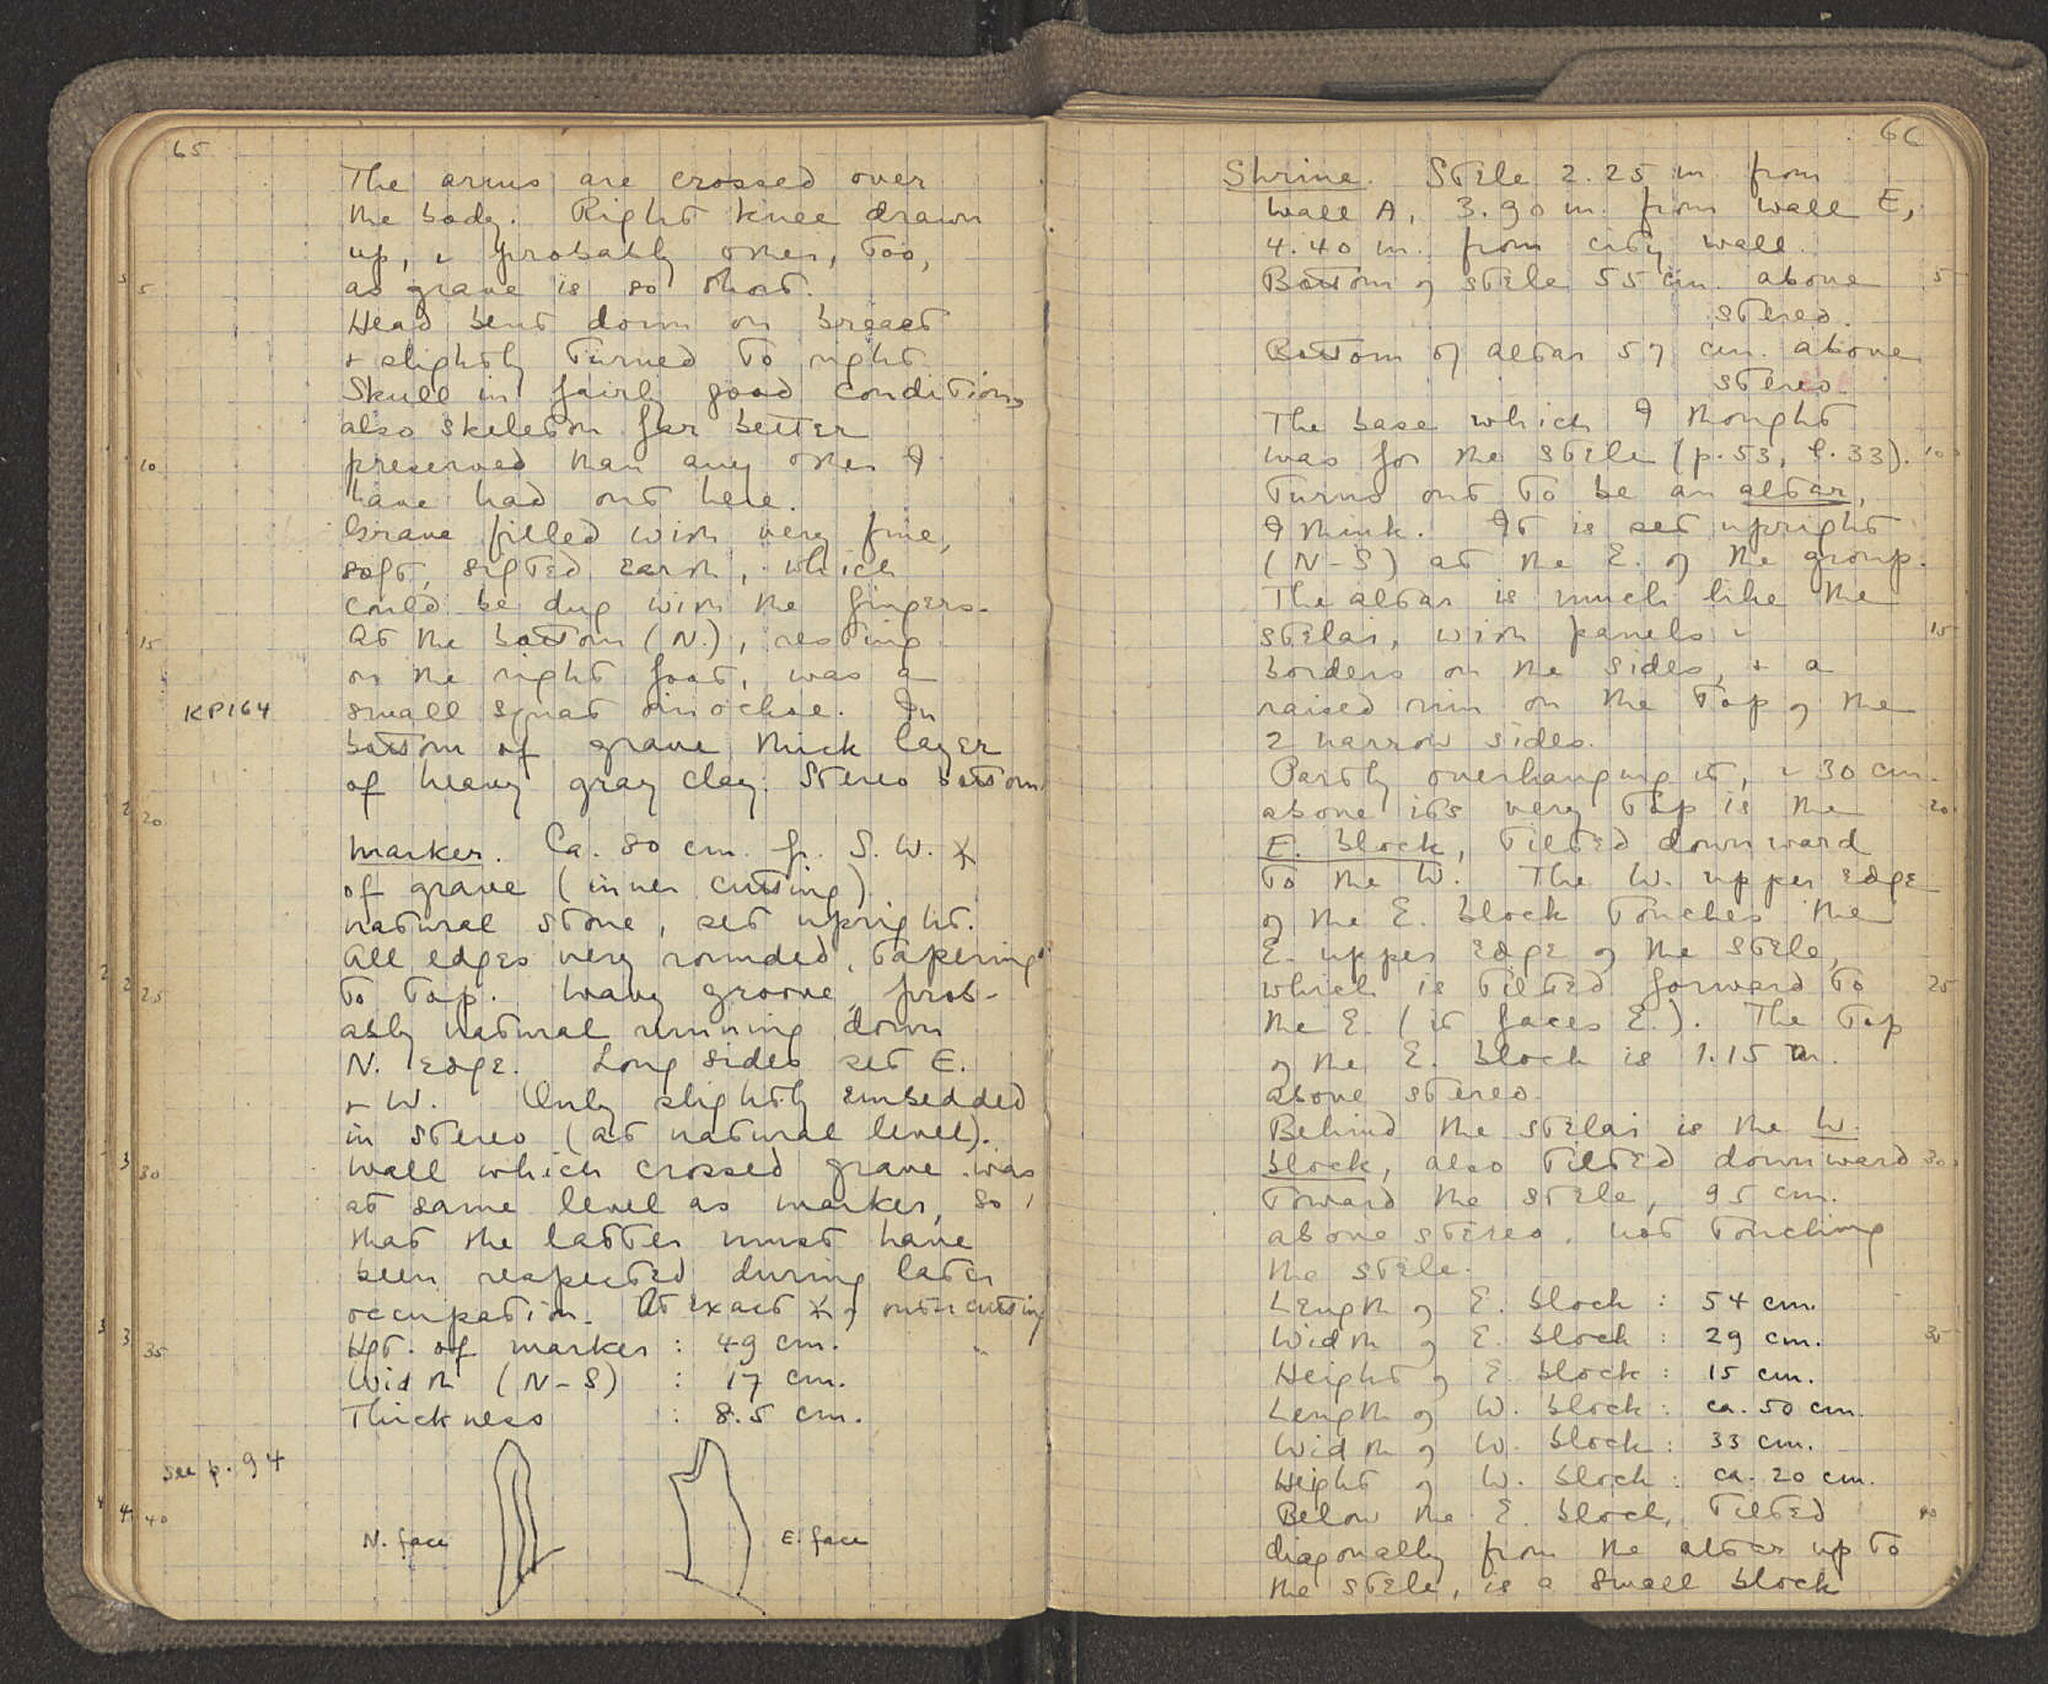 65
The arms are crossed over
the body. Right knee drawn
up, & probably other, too,
5 as grave is so short.
Head bent down on breast
& slightly turned to right
Skull in fairly good condition,
also skeleton far better
10 preserved than any other I
have had out here.
Grave filled with very fine,
soft, sifted earth, which
could be dug with the fingers.
15 At the bottom (N.), resting
on the right foot, was a
KP164 small squat oinochoe. In
bottom of grave thick layer
of heavy gray clay. Stereo bottom
20
Marker. Ca. 80 cm. fr. S.W.
of grave (inner cutting)
natural stone, set upright.
All edges very rounded, tapering
25 to top. Wavy groove, prob-
ably natural running down
N. edge. Long sides set E.
& W. Only slightly embedded
in stereo (at natural level).
30 Wall which crossed grave was
at same level as marker, so
that the latter must have
been respected during later
occupation. At exact of outer cutting
35 Hgt. of marker : 49 cm.
Width (N-S) : 17 cm.
Thickness : 8.5 cm.
see p. 94
40
N. face E. face
66
Shrine. Stele 2.25 m from
wall A, 3.90 m. from wall E,
4.40 m. from city wall.
Bottom of stele 55 cm. above 5
stereo.
Bottom of altar 57 cm. above
stereo
The base which I thought
was for the stele (p. 53, l. 33). 10
turns out to be an altar,
I think. It is set upright
(N-S) at the E. of the group.
The altar is much like the
stelai, with panels & 15
borders on the sides, & a
raised rim on the top of the
2 narrow sides.
Partly overhanging it, & 30 cm.
above its very top is the 20
E. block, tilted downward
to the W. The W. upper edge
of the E. block touches the
E. upper edge of the stele,
which is tilted forward to 25
the E. (it faces E.). The top
of the E. block is 1.15 m.
above stereo.
Behind the stelai is the W.
block, also tilted downward 30
toward the stele, 95 cm.
above stereo, not touching
the stele.
Length of E. block : 54 cm.
Width of E. block : 29 cm. 35
Height of E. block : 15 cm.
Length of W. block : ca. 50 cm.
Width of W. block : 33 cm.
Height of W. block : ca. 20 cm.
Below the E. block, tilted 40
diagonally from the altar up to
the stele, is a small block